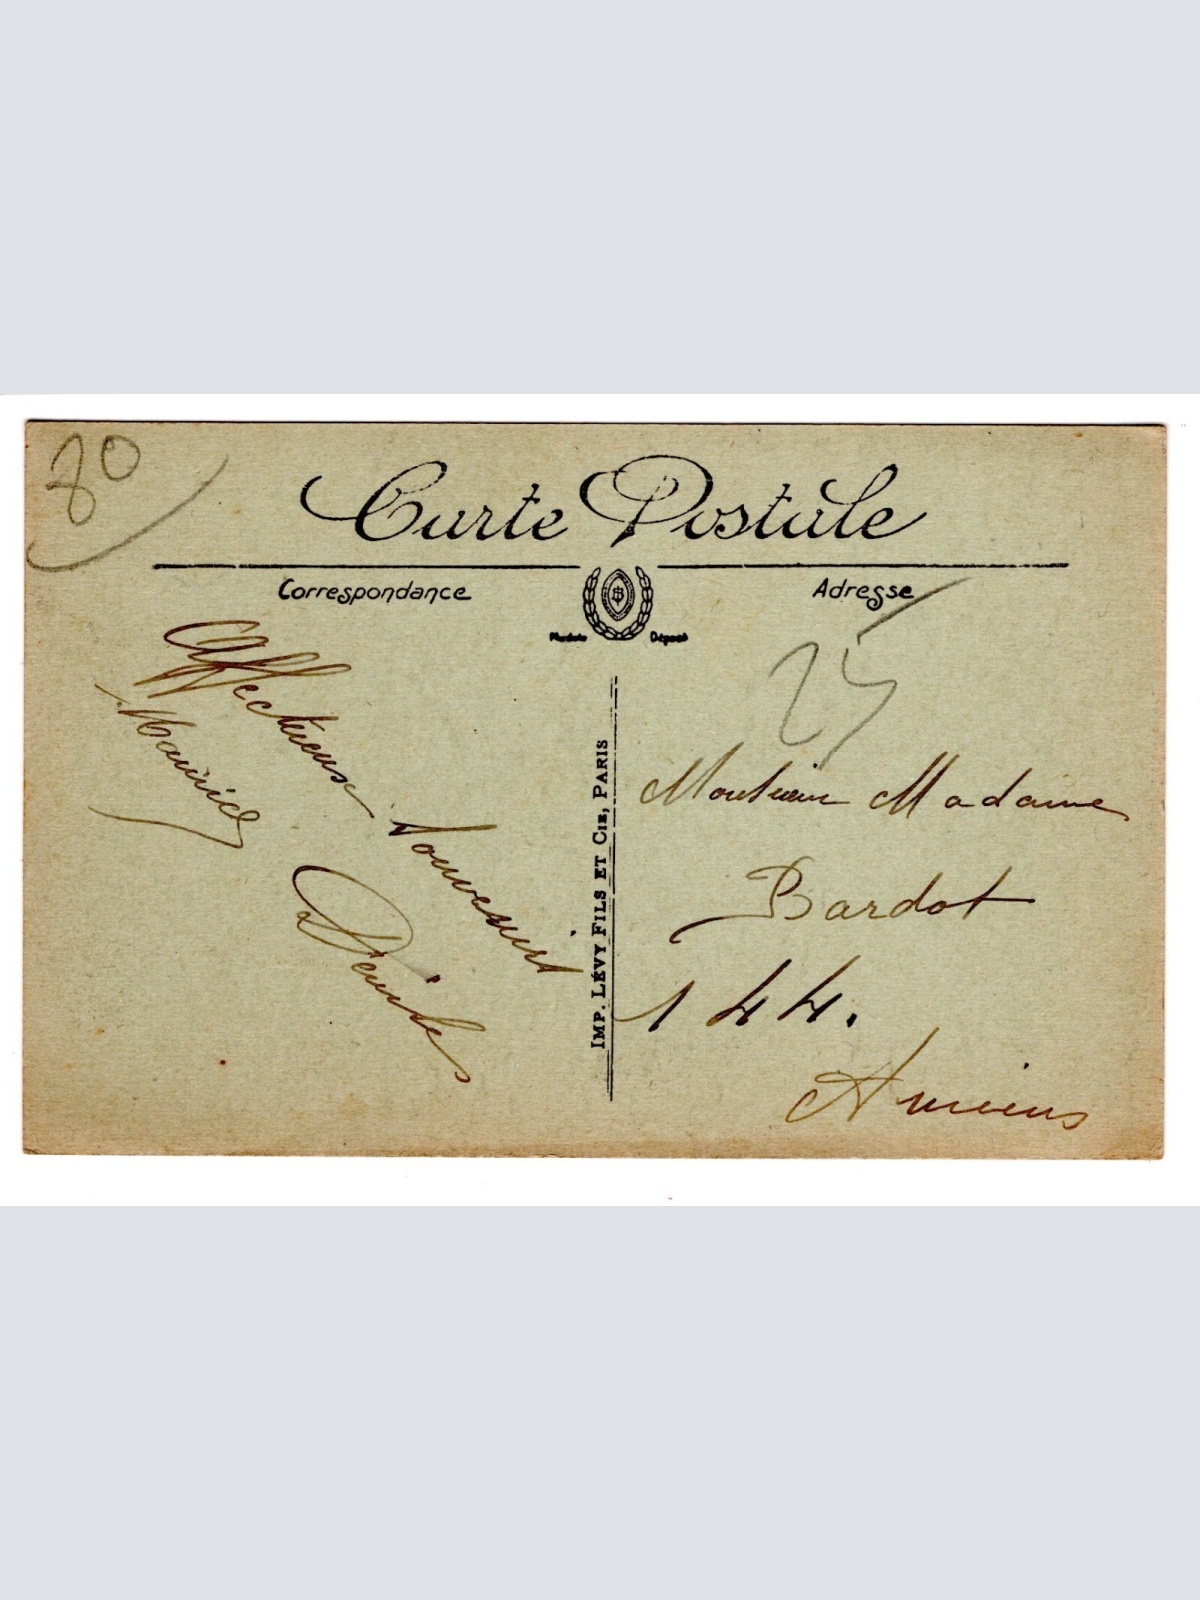 80
Carte Postale
Correspondance
Adresse
Modèle Déposé
25
Affectueux Souvenir
Maurice
Denise
IMP. LÉVY FILS ET CIE, PARIS
Monsieur Madame
Bardot
144.
Amiens